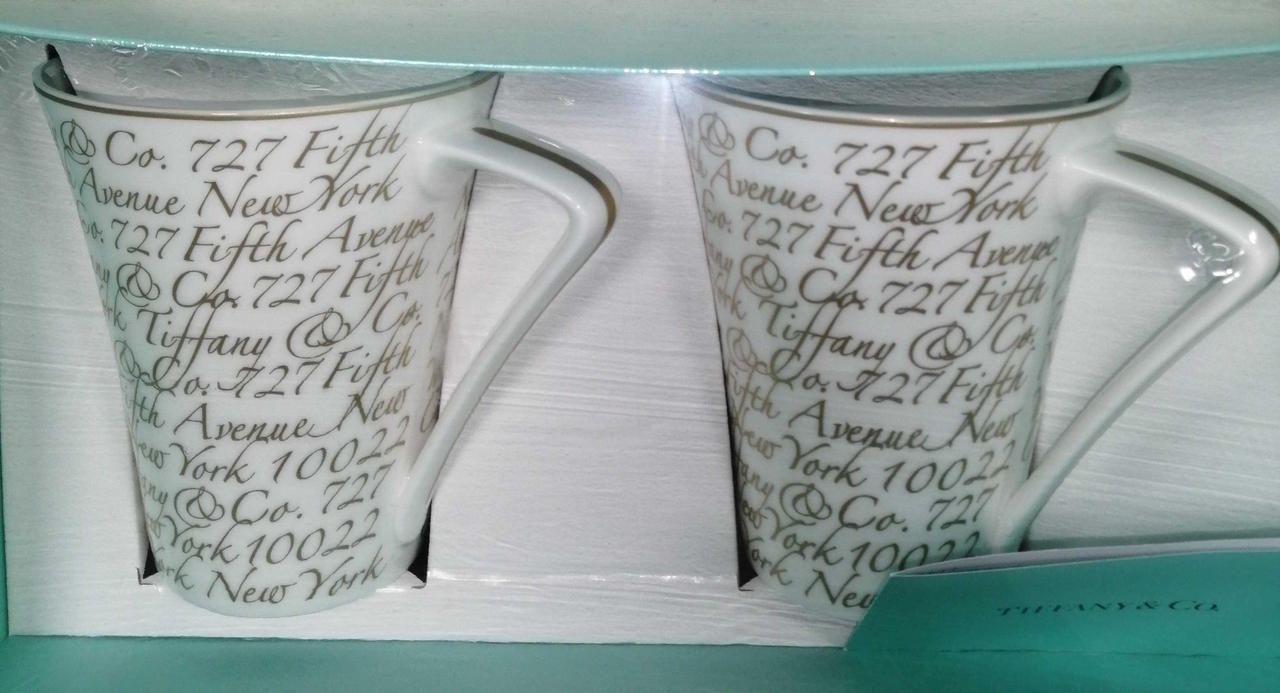 & Co. 727 Fifth
Avenue New York
Co. 727 Fifth Avenue
ny & Co. 727 Fifth
rk Tiffany & Co.
& Co. 727 Fifth
fth Avenue New
ew York 10022
any & Co. 727
York 10022
ork New York
& Co. 727 Fifth
Avenue New York
Co. 727 Fifth Avenue
ny & Co. 727 Fifth
rk Tiffany & Co.
& Co. 727 Fifth
Fifth Avenue New
ew York 10022
any & Co. 727
York 10022
ork New
TIFFANY & CO.